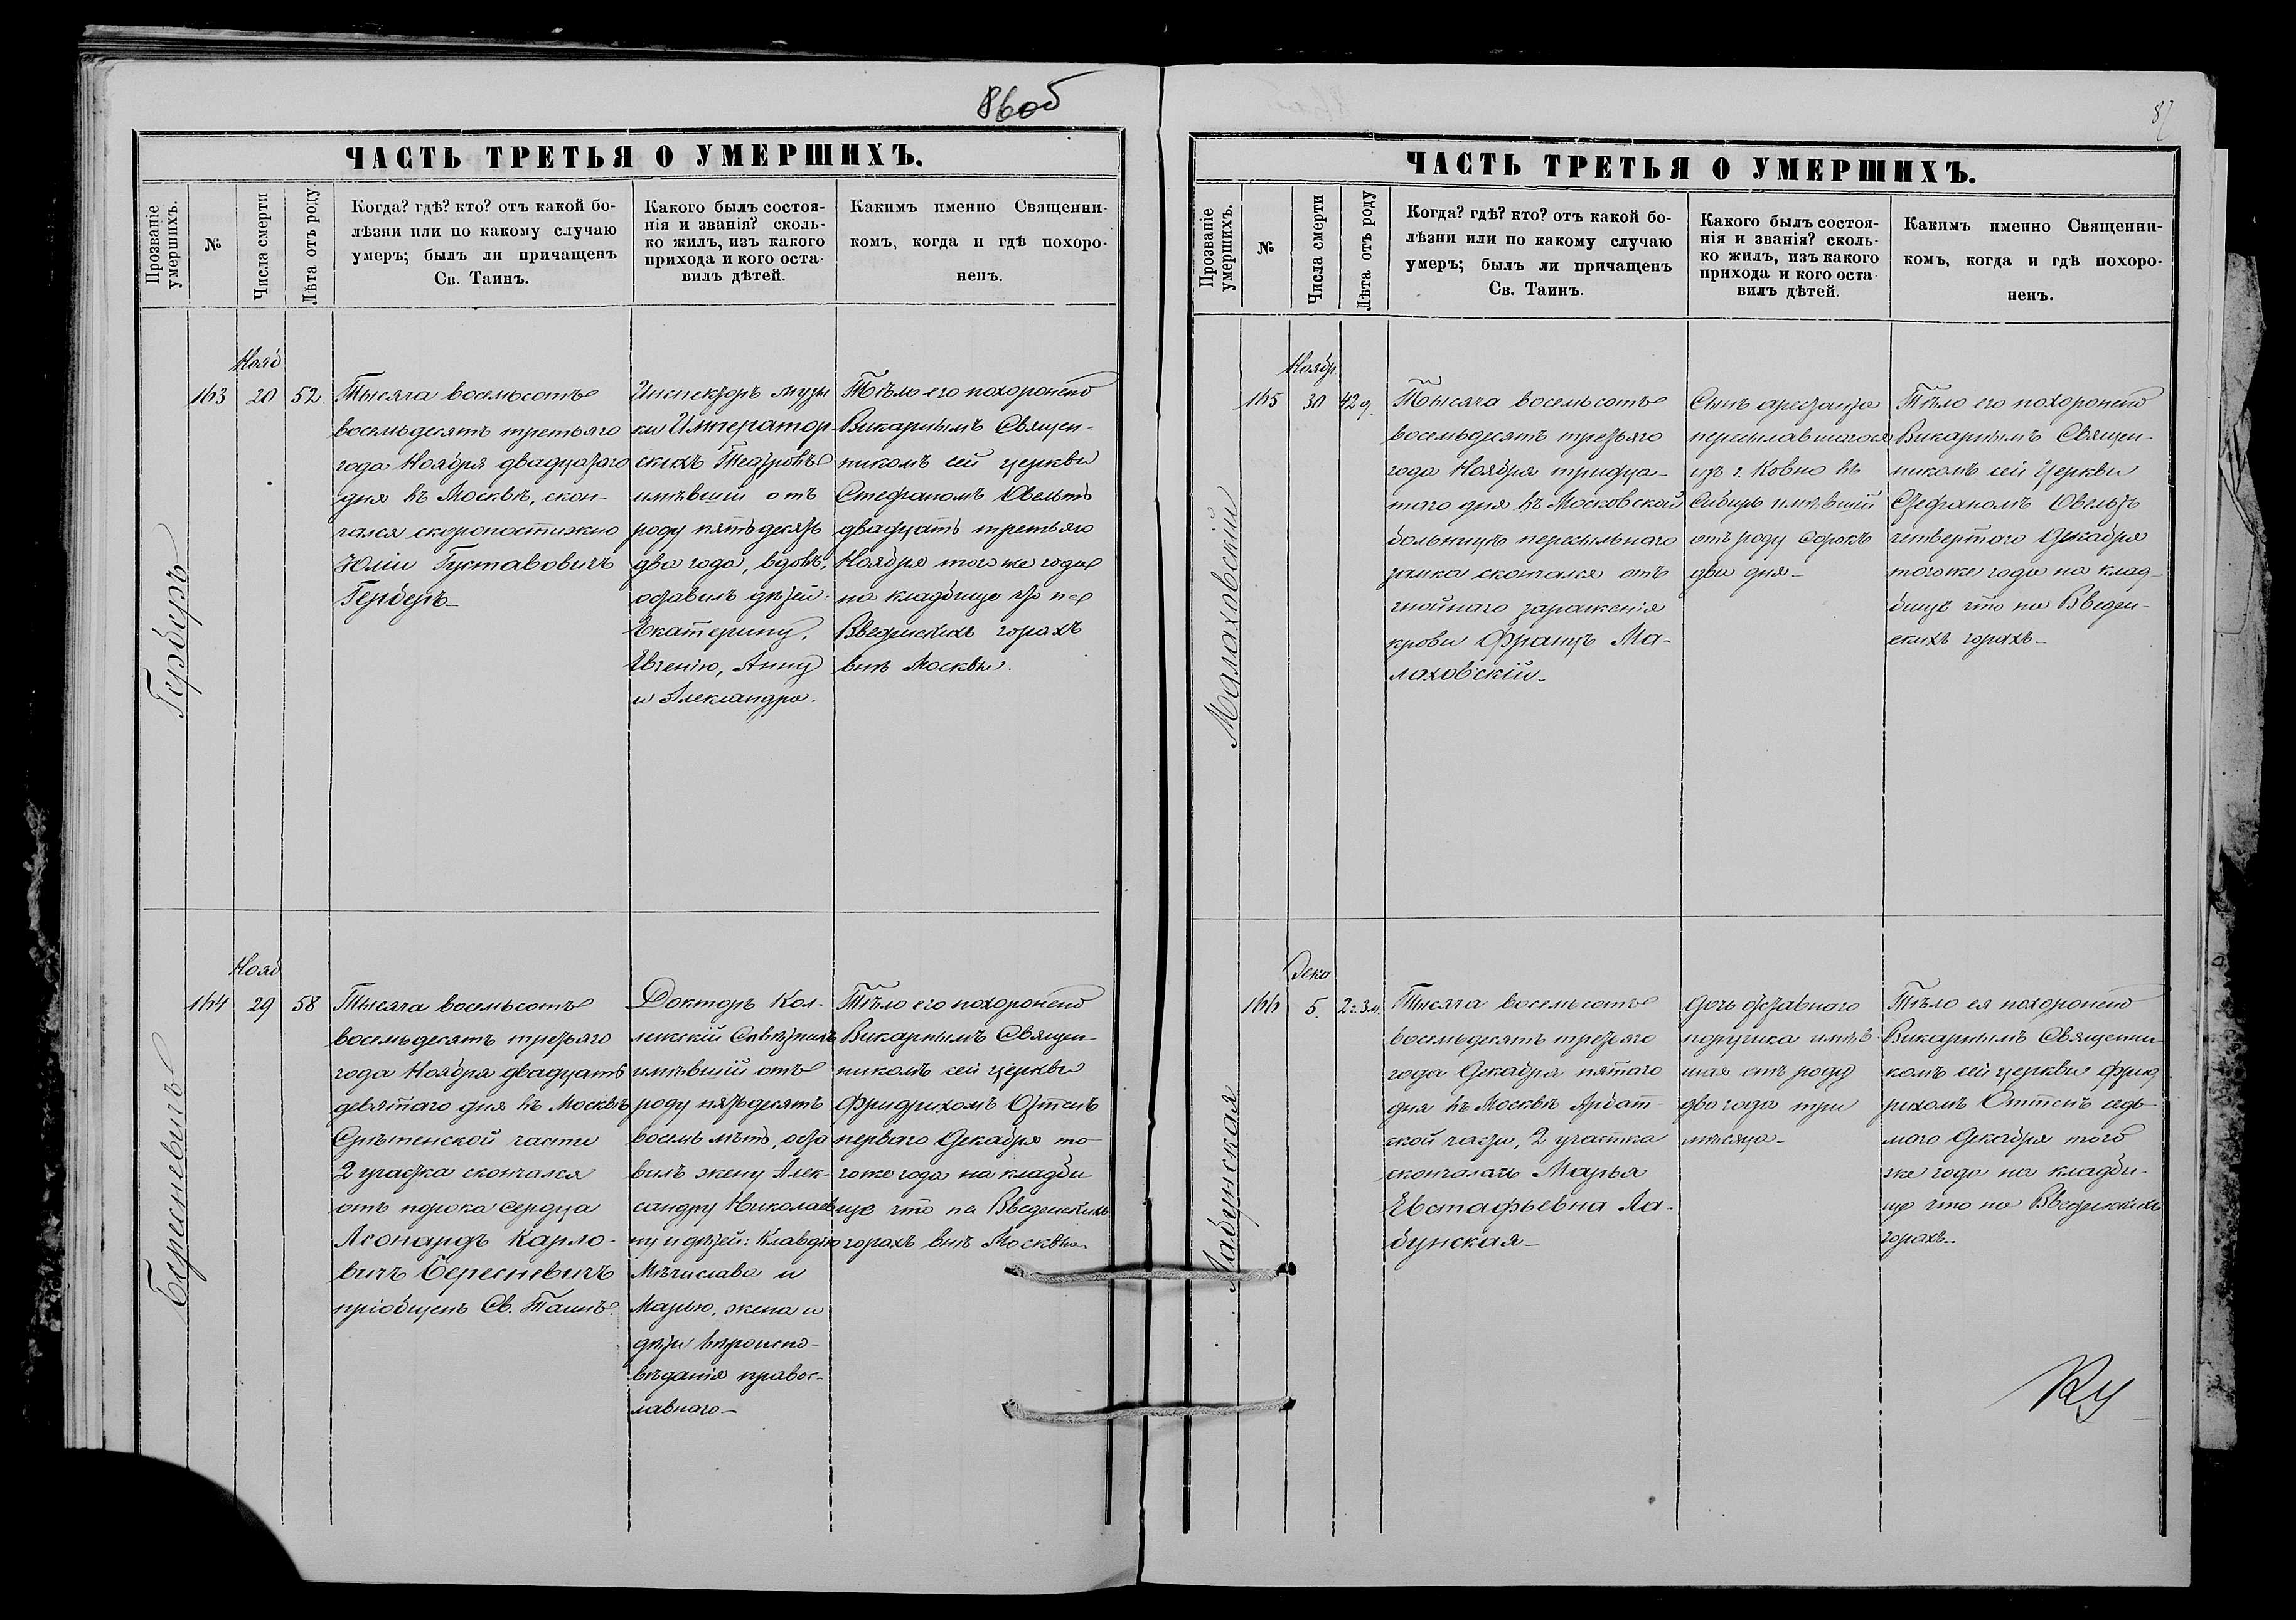 86об
ЧАСТЬ ТРЕТЬЯ О УМЕРШИХЪ.
Прозваніе умершихъ.
№
Числа смерти
Лѣта отъ роду
Когда? гдѣ? кто? отъ какой бо-
лѣзни или по какому случаю
умеръ; былъ ли причащенъ
Св. Таинъ.
Какого былъ состоя-
нія и званія? сколь-
ко жилъ, изъ какого
прихода и кого оста-
вилъ дѣтей.
Какимъ именно Священни-
комъ, когда и гдѣ похоро-
ненъ.
Герберъ
Нояб
163
20
52.
Тысяча восемьсотъ
восемьдесятъ третьяго
года Ноября двадцатаго
дня въ Москвѣ, скон-
чался скоропостижно
Юлій Густавовичъ
Герберъ
Инспекторъ музы
ки Император-
скихъ Театровъ
имѣвшій отъ
роду пятьдесятъ
два года, вдовъ,
оставилъ дѣтей:
Екатерину,
Евгенію, Анну
и Александра.
Тѣло его похоронено
Викарнымъ Священ-
никомъ сей церкви
Стефаномъ Овельтъ
двадцать третьяго
Ноября того же года
на кладбище что на
Введенскихъ горахъ
внѣ Москвы.
Бересневичъ
Нояб
164
29
58
Тысяча восемьсотъ
восемьдесятъ третьяго
года Ноября двадцать
девятаго дня въ Москвѣ
Срѣтенской части
2 участка скончался
отъ порока сердца
Леонардъ Карло-
вичъ Бересневичъ
пріобщенъ Св. Таинъ.
Докторъ Кол-
лежскій Совѣтникъ
имѣвшій отъ
роду пятьдесятъ
восемь лѣтъ, оста
вилъ жену Алек-
сандру Николаев
ну и дѣтей: Клавдію
Мѣчислава и
Марью, жена и
дѣти вѣроиспо-
вѣданія правос-
лавнаго
Тѣло его похоронено
Викарнымъ Священ-
никомъ сей церкви
Фридрихомъ Оттенъ
перваго Декабря то-
гоже года на кладби
ще что на Введенскихъ
горахъ внѣ Москвы
87
ЧАСТЬ ТРЕТЬЯ О УМЕРШИХЪ.
Прозваніе умершихъ.
№
Числа смерти
Лѣта отъ роду
Когда? гдѣ? кто? отъ какой бо-
лѣзни или по какому случаю
умеръ; былъ ли причащенъ
Св. Таинъ.
Какого былъ состоя-
нія и званія? сколь-
ко жилъ, изъ какого
прихода и кого оста-
вилъ дѣтей.
Какимъ именно Священни-
комъ, когда и гдѣ похоро-
ненъ.
Малаховскій
Ноябр
165
30
42 д.
Тысяча восемьсотъ
восемьдесятъ третьяго
года Ноября тридца-
таго дня въ Московской
больницѣ пересыльнаго
замка скончался отъ
гнойнаго зараженія
крови Францъ Ма-
лаховскій
Сынъ арестанта
пересылавшагося
изъ г. Ковно въ
Сибирь имѣвшій
отъ роду сорокъ
два дня
Тѣло его похоронено
Викарнымъ Священ-
никомъ сей церкви
Стефаномъ Овельтъ
четвертаго Декабря
тогоже года на клад-
бищѣ что на Введен-
скихъ горахъ
Лабунская
Дека
166
5.
2 г. 3 м.
Тысяча восемьсотъ
восемьдесятъ третьяго
года Декабря пятаго
дня въ Москвѣ Арбат-
ской части, 2 участка
скончалась Марья
Евстафьевна Ла-
бунская
Дочь отставнаго
поручика имѣв-
шая отъ роду
два года три
мѣсяца
Тѣло ея похоронено
Викарнымъ Священни-
комъ сей церкви Фрид
рихомъ Оттенъ седь-
маго Декабря того
же года на кладби-
ще что на Введенскихъ
горахъ